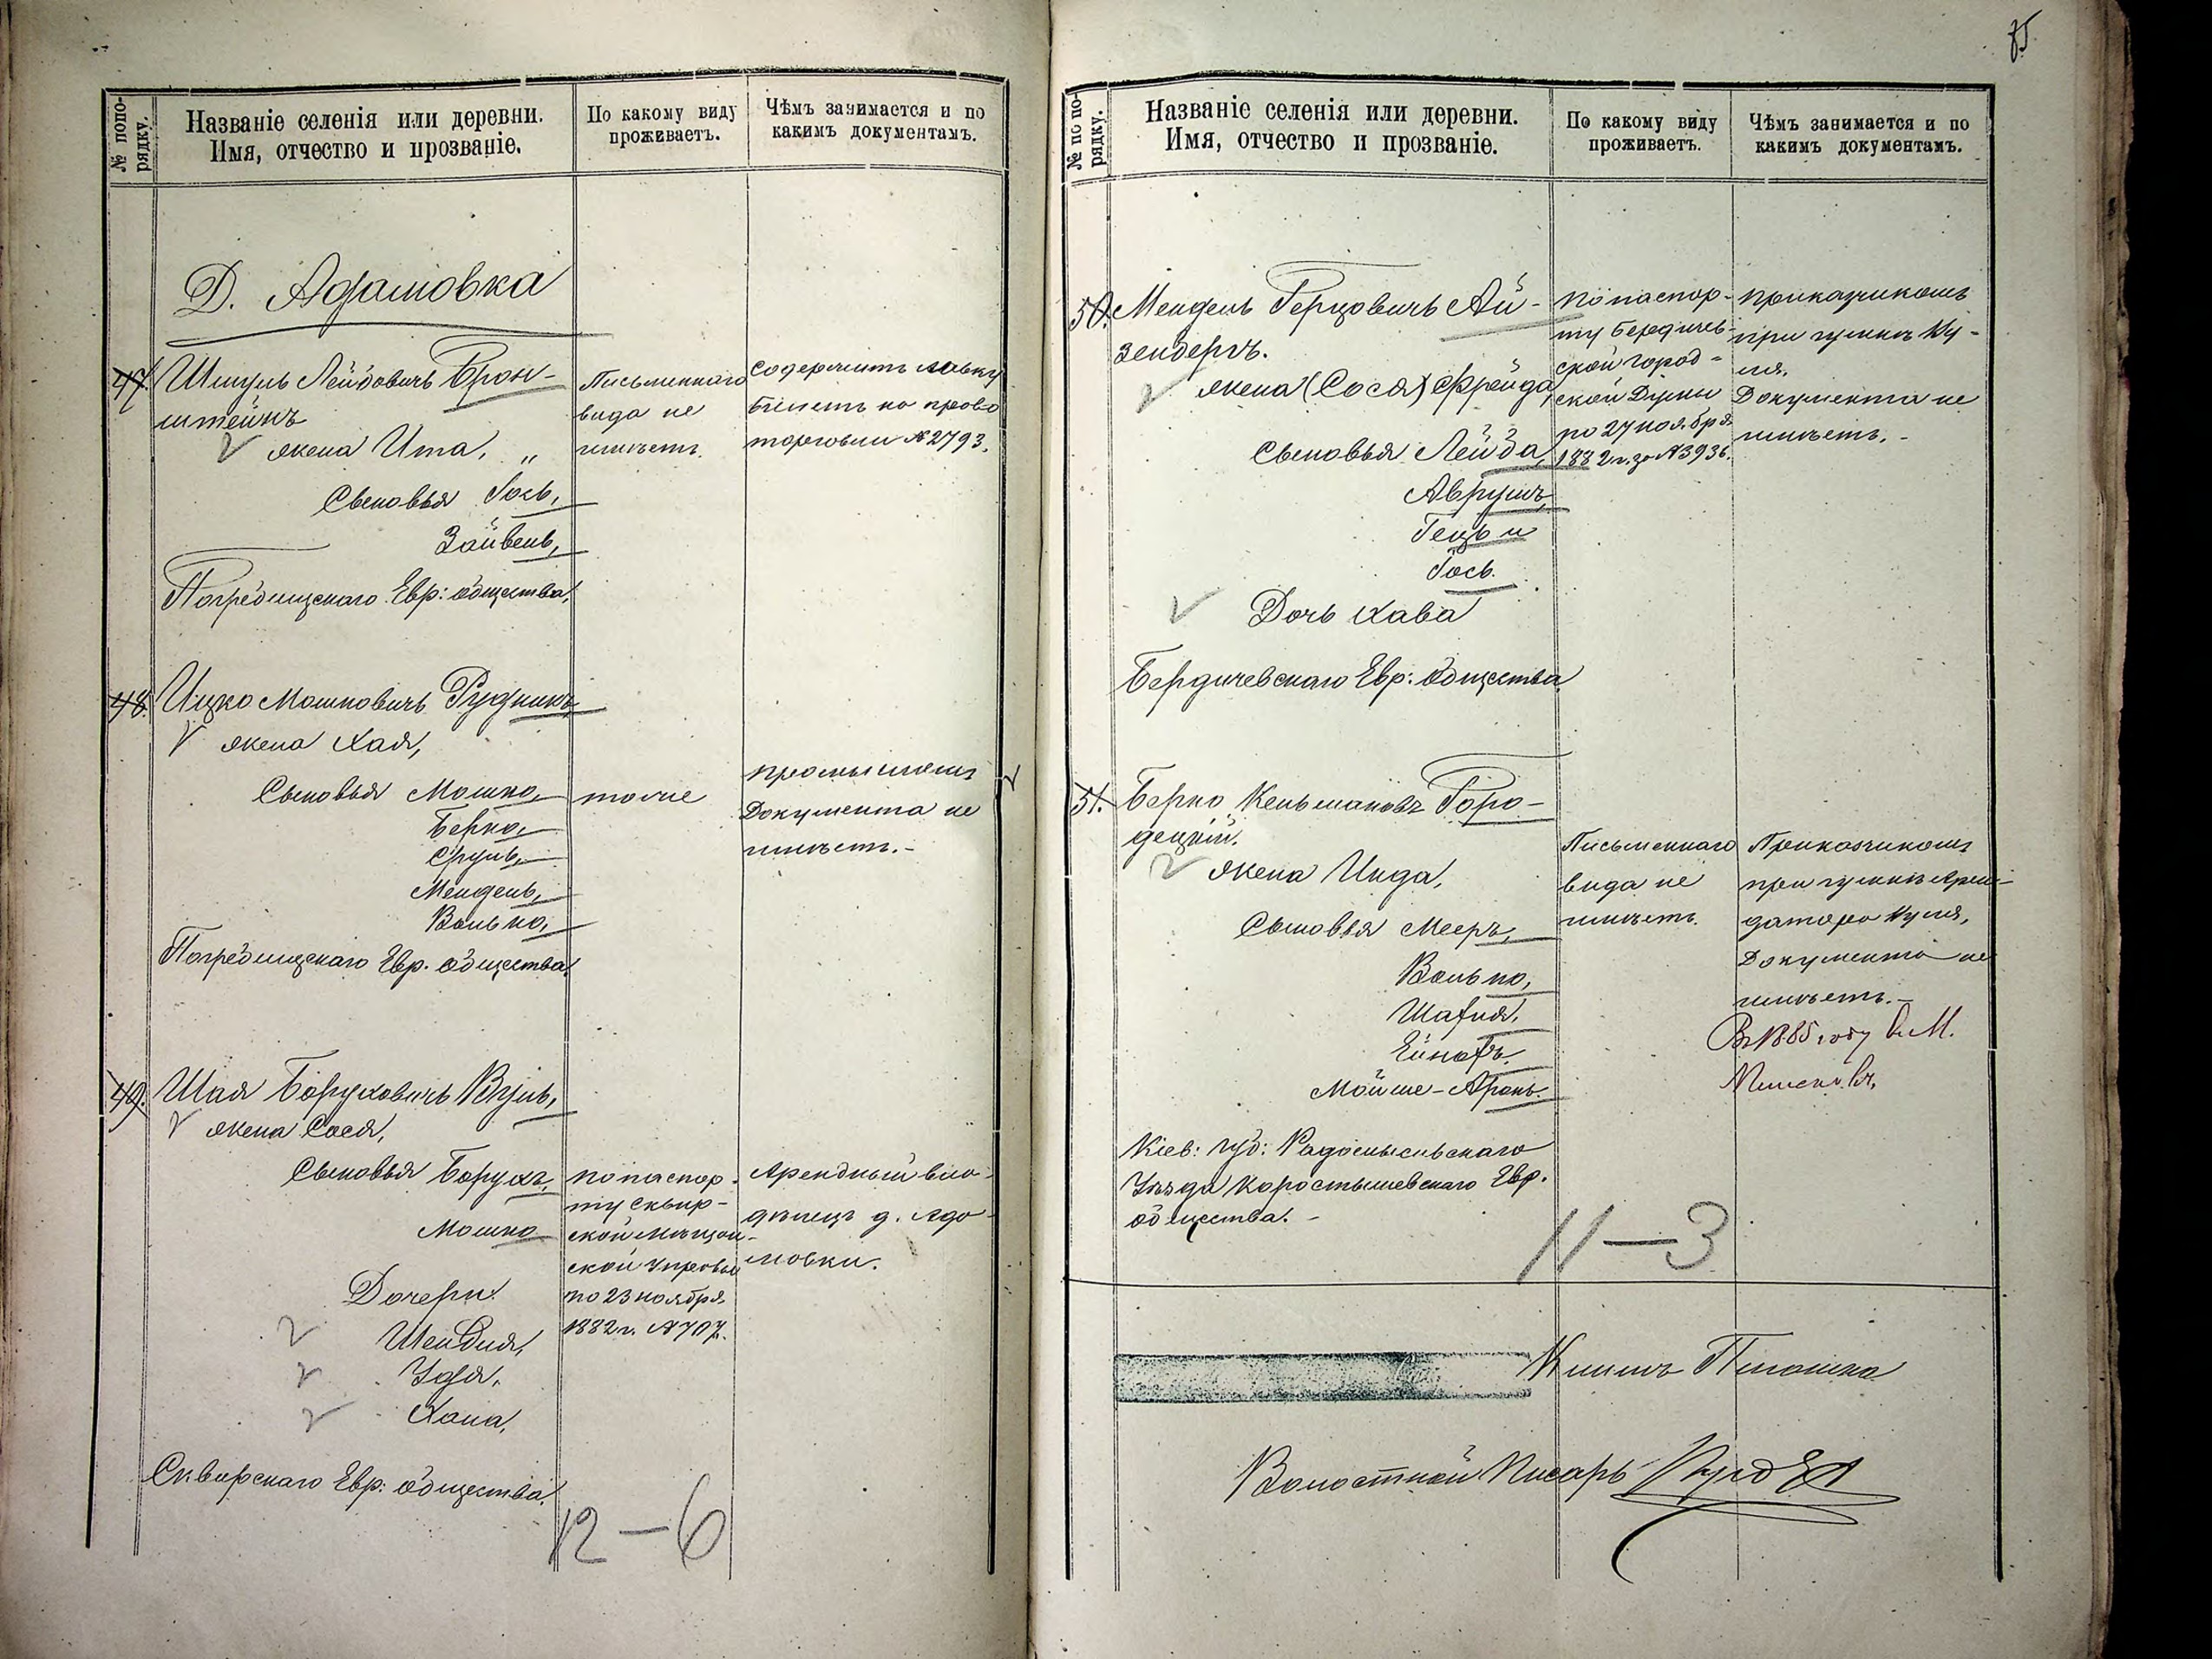 85
№ по по-
рядку.
Названіе селенія или деревни.
Имя, отчество и прозваніе.
По какому виду
проживаетъ.
Чѣмъ занимается и по
какимъ документамъ.
Д. Адамовка
47.
Шмуль Лейбовичъ Брон-
штейнъ
жена Ита, „
Сыновья Гось,
Зайвель,
Погребищскаго Евр: общества,
Письменнаго
вида не
имѣетъ.
Содержитъ лавку
билетъ на право
торговли № 2793.
48.
Ицко Мошковичъ Рудникъ,
жена Хая,
Сыновья Мошко,
Берко,
Сруль,
Мендель,
Волько,
Погребищскаго Евр. общества,
тоже
Документа не
имѣетъ.-
49.
Шая Боруховичъ Вуль,
жена Сося,
Сыновья Борухъ,
Мошко
Дочери
Шендля,
Удя,
Хана,
Сквирскаго Евр: общества.
По паспор-
ту Сквир-
ской мѣщан-
ской управы
по 23 ноября
1882 г. № 707.
Арендный вла-
дѣлецъ д. Ада-
мовки.
12-6
№ по по-
рядку.
Названіе селенія или деревни.
Имя, отчество и прозваніе.
По какому виду
проживаетъ.
Чѣмъ занимается и по
какимъ документамъ.
50.
Мендель Герцовичъ Ай-
зендергъ.
жена (Сося) Фрейда,
Сыновья Лейба,
Аврумъ,
Гецъ и
Гось.
Дочь Хава
Бердичевскаго Евр: общества
По паспор-
ту Бердичев-
ской город-
ской Думы
по 27 ноября
1882 г. за № 3936.
Приказчикомъ
при гумнѣ Ву-
ля.
Документа не
имѣетъ.-
51.
Берко Кельмановъ Горо-
децкій.
жена Инда,
Сыновья Мееръ,
Волько,
Шафия,
Мойше-Аронъ.
Кіев: губ: Радомысльскаго
Уѣзда Коростышевскаго Евр.
общества.-
Письменнаго
вида не
имѣетъ.
Приказчикомъ
при гумнѣ Арен-
датора Вуля,
Документа не
имѣетъ.-
Въ 1885 году в М.
11-3
Волостной Писарь